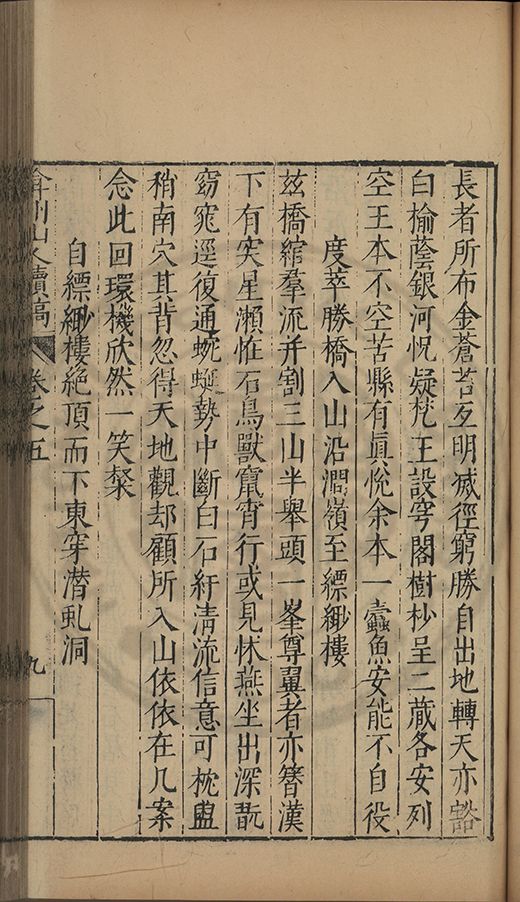 長者所布金蒼苔互明滅徑窮勝自出地轉天亦豁
白榆蔭銀河怳疑梵王設穹閣樹杪呈二藏各安列
空王本不空苦縣有眞悅余本一蠹魚安能不自役
度萃勝橋入山沿澗嶺至縹緲樓
茲橋綰羣流并割三山半舉頭一峯尊翼者亦簪漢
下有突星瀨恠石鳥獸竄宵行或見怵燕坐出深翫
窈窕逕復通蜿蜒勢中斷白石紆清流信意可枕盥
稍南穴其背忽得天地觀却顧所入山依依在几案
念此回環機欣然一笑粲
自縹緲樓絕頂而下東穿潛虬洞
弇州山人續稿 卷之五 九